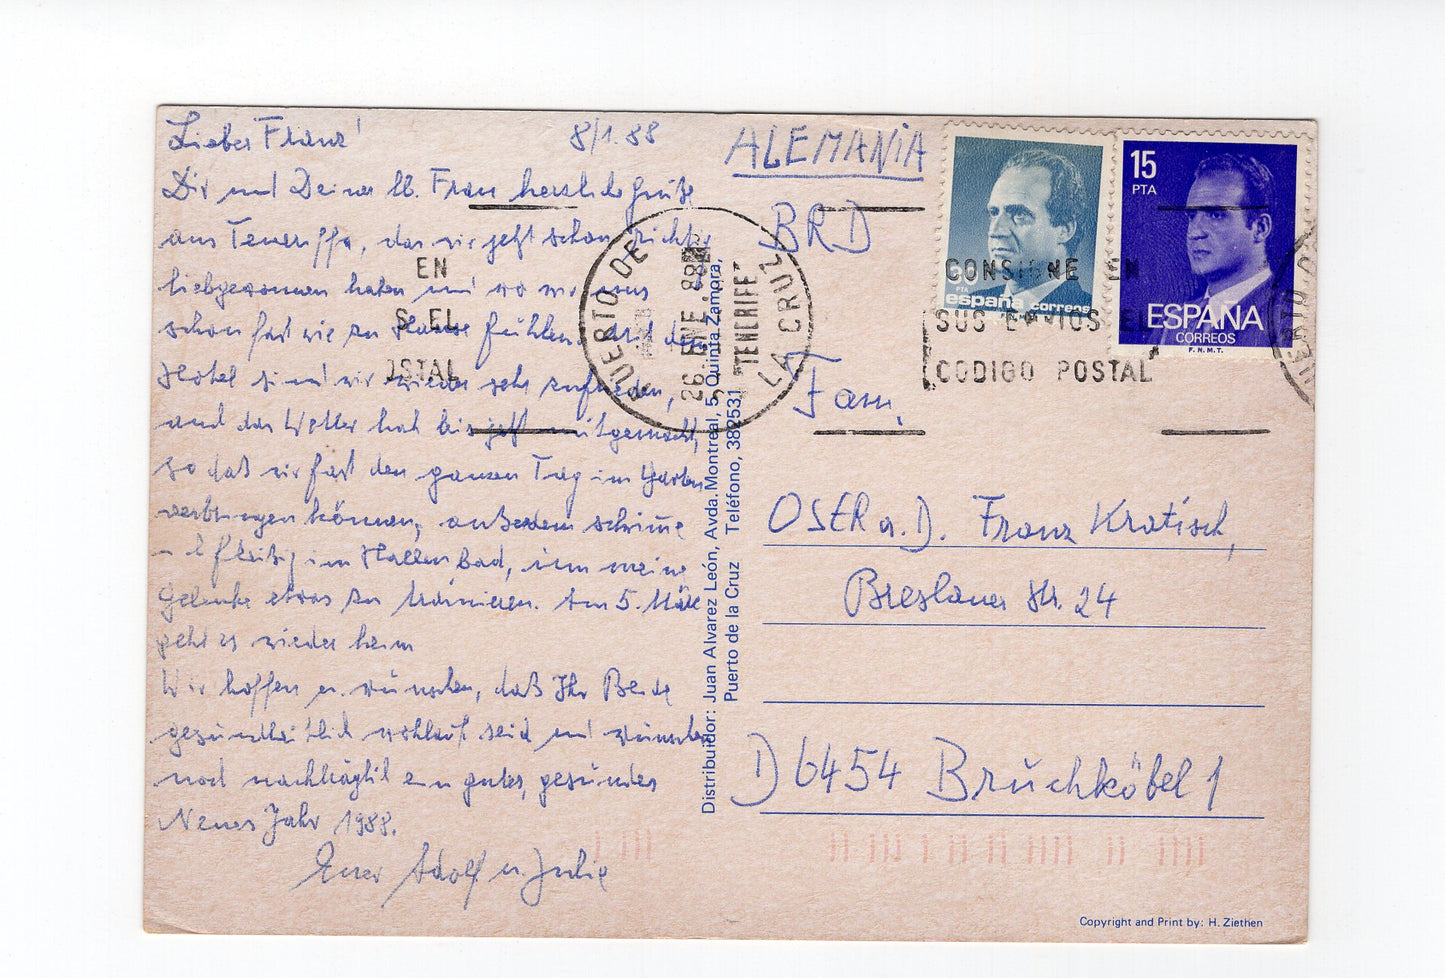 Lieber Franz!
8/1.88
Dir und Deiner lb. Frau herzliche Grüße
aus Teneriffa, das wir jetzt schon richtig
liebgewonnen haben und wo wir uns
schon fast wie zu Hause fühlen. Mit dem
Hotel sind wir wieder sehr zufrieden,
und das Wetter hat bis jetzt mitgemacht,
so daß wir fast den ganzen Tag im Garten
verbringen können, außerdem schwimme
fleißig im Hallenbad, um meine
Gelenke etwas zu trainieren. Am 5. März
geht es wieder heim
Wir hoffen u. wünschen, daß Ihr Beide
gesundheitlich wohlauf seid und wünschen
noch nachträglich ein gutes, gesundes
Neues Jahr 1988.
Euer Adolf u. Julie
Distribuidor: Juan Alvarez León, Avda. Montreal, 5 Quinta Zamora,
Puerto de la Cruz Teléfono, 382531
ALEMANIA
BRD
Fam.
OSER a.D. Franz Kratisch,
Breslauer Str. 24
D 6454 Bruchköbel 1
PUERTO DE LA CRUZ
26 ENE. 88
TENERIFE
EN
S EL
OSTAL
CONSIGNE EN
SUS ENVIOS EL
CODIGO POSTAL
PUERTO
PTA
españa correos
15
PTA
ESPAÑA
CORREOS
F.N.M.T.
Copyright and Print by: H. Ziethen